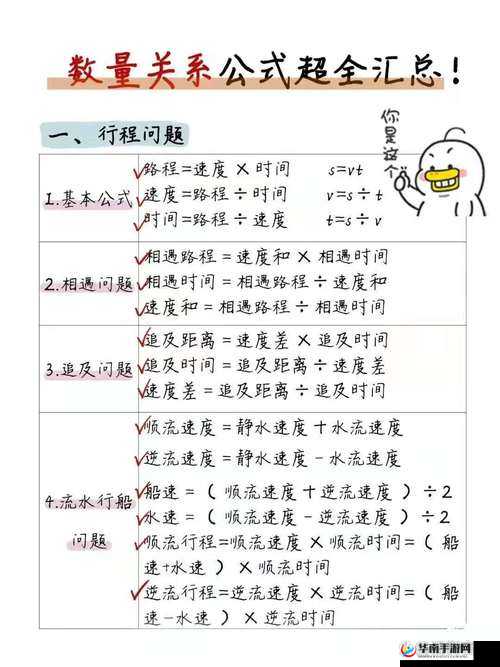 数量关系公式超全汇总!
你是这个
一、行程问题
1.基本公式
路程=速度×时间 s=vt
速度=路程÷时间 v=s÷t
时间=路程÷速度 t=s÷v
2.相遇问题
相遇路程=速度和×相遇时间
相遇时间=相遇路程÷速度和
速度和=相遇路程÷相遇时间
3.追及问题
追及距离=速度差×追及时间
追及时间=追及距离÷速度差
速度差=追及距离÷追及时间
4.流水行船
问题
顺流速度=静水速度+水流速度
逆流速度=静水速度-水流速度
船速=(顺流速度+逆流速度)÷2
水速=(顺流速度-逆流速度)÷2
顺流行程=顺流速度×顺流时间=(船
速+水速)×顺流时间
逆流行程=逆流速度×逆流时间=(船
速-水速)×逆流时间
华南手游网